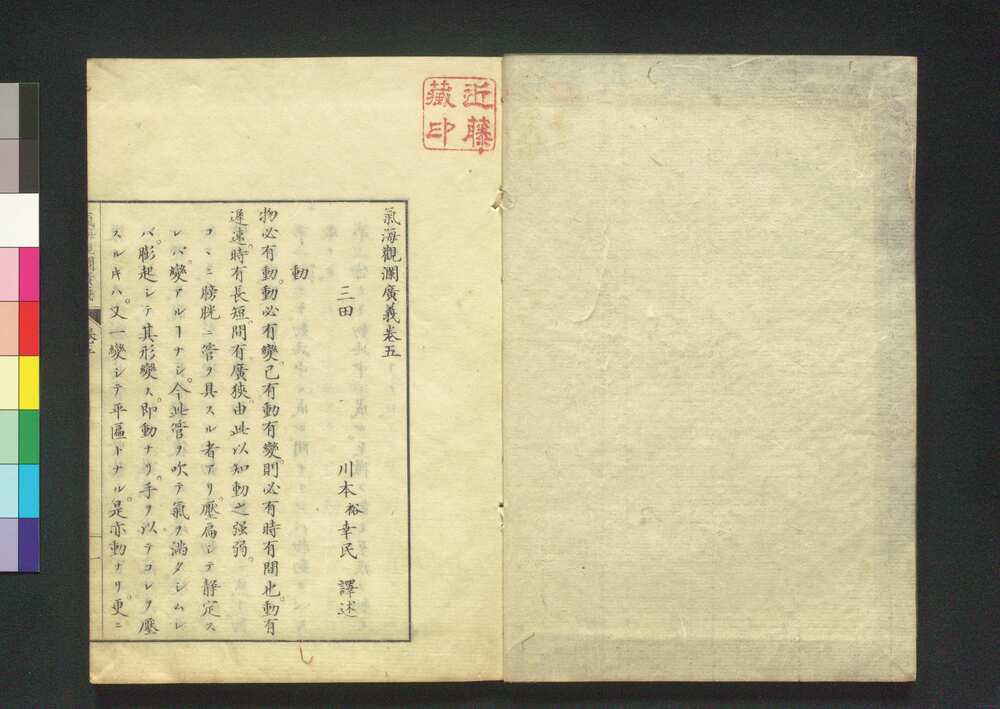 近藤
藏印
氣海觀瀾廣義卷五
三田　川本裕幸民　譯述
動
物必有動。動必有變。已有動有變。則必有時有間也。動有
遲速。時有長短。間有廣狹。由此以知動之强弱。
コヽニ膀胱ニ管ヲ具スル者アリ。壓扁シテ靜定ス
レバ。變アルヿナシ。今此管ヲ吹テ氣ヲ滿タシムレ
バ。膨起シテ其形變ス。即動ナリ。手ヲ以テコレヲ壓
スルキハ。又一變シテ平區トナル。是亦動ナリ。更ニ